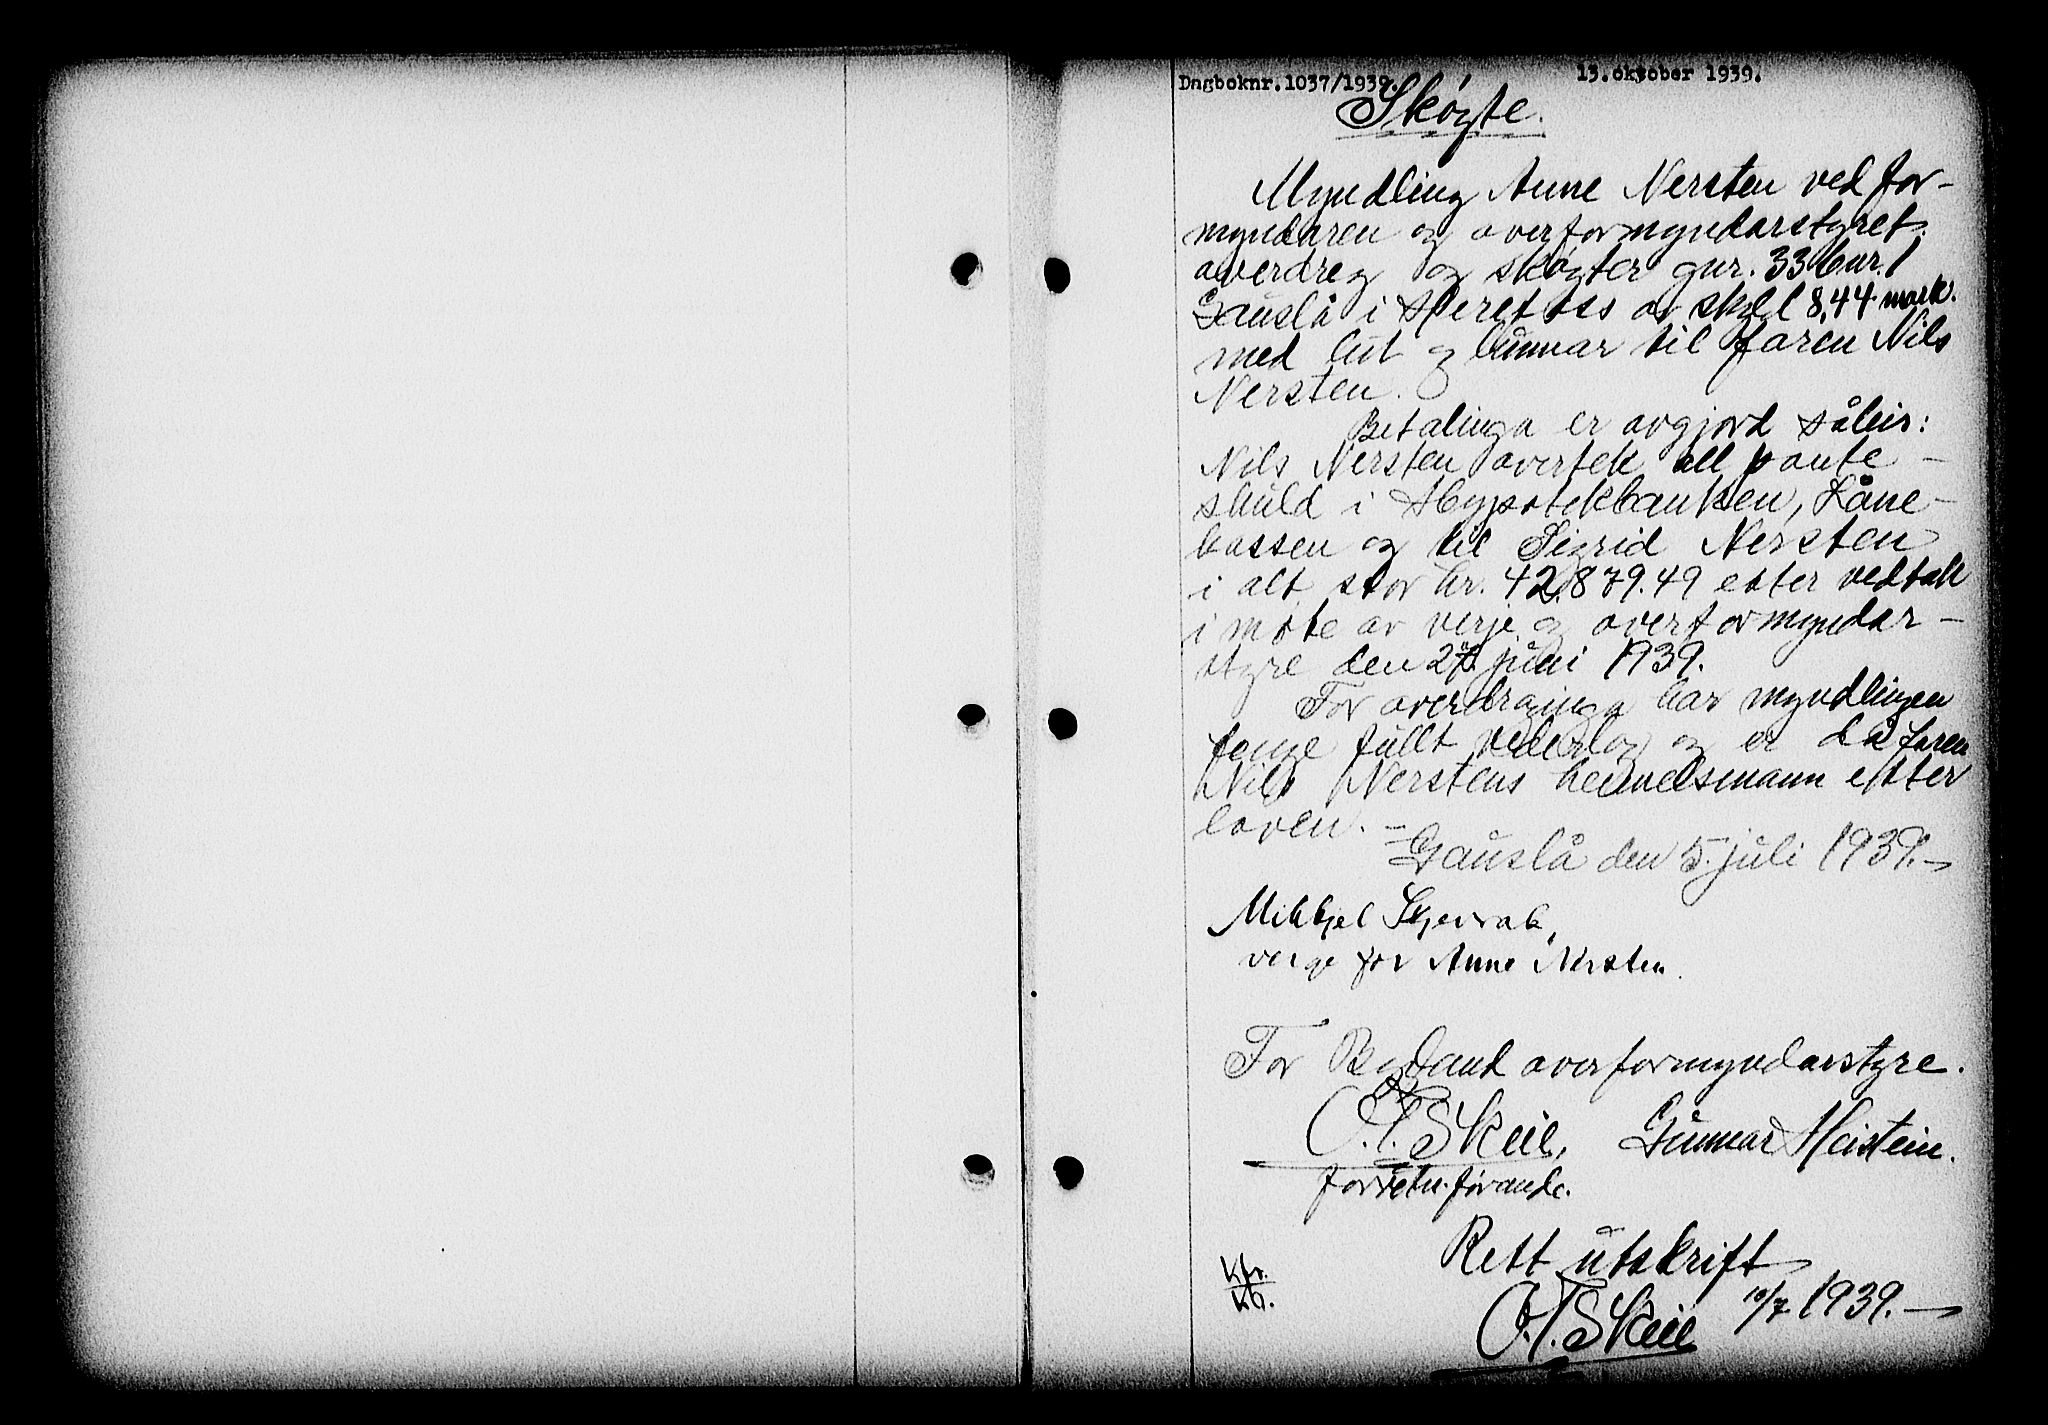 Dagboknr. 1037/1939.
13. oktober 1939.
Skøyte.
Myndling Anne Nersten ved for-
myndaren og overformyndarstyret
overdreg og skøyter gnr. 33 bnr. 1
Gauslå i Herefoss av skyld 8,44 mark.
med lut og lunnar til faren Nils
Nersten.
Betalinga er avgjord såleis:
Nils Nersten overtek all pante-
skuld i Hypotekbanken, Låne-
kassen og til Sigrid Nersten
i alt stor kr. 42.879.49 etter vedtak
i møte av verje og overformyndar-
styre den 27. juni 1939.
For overdraginga har myndlingen
fenge fullt vederlag og er då faren
Nils Nerstens heimelsmann etter
loven. —
Gauslå den 5. juli 1939. —
Mikkjel
verge for Anne Nersten.
For Bygland overformyndarstyre.
O.T. Skeie, Gunnar Heistein.
forretn. førande.
Rett utskrift
Kfr.
Kb.
10/7 1939. —
O.T. Skeie